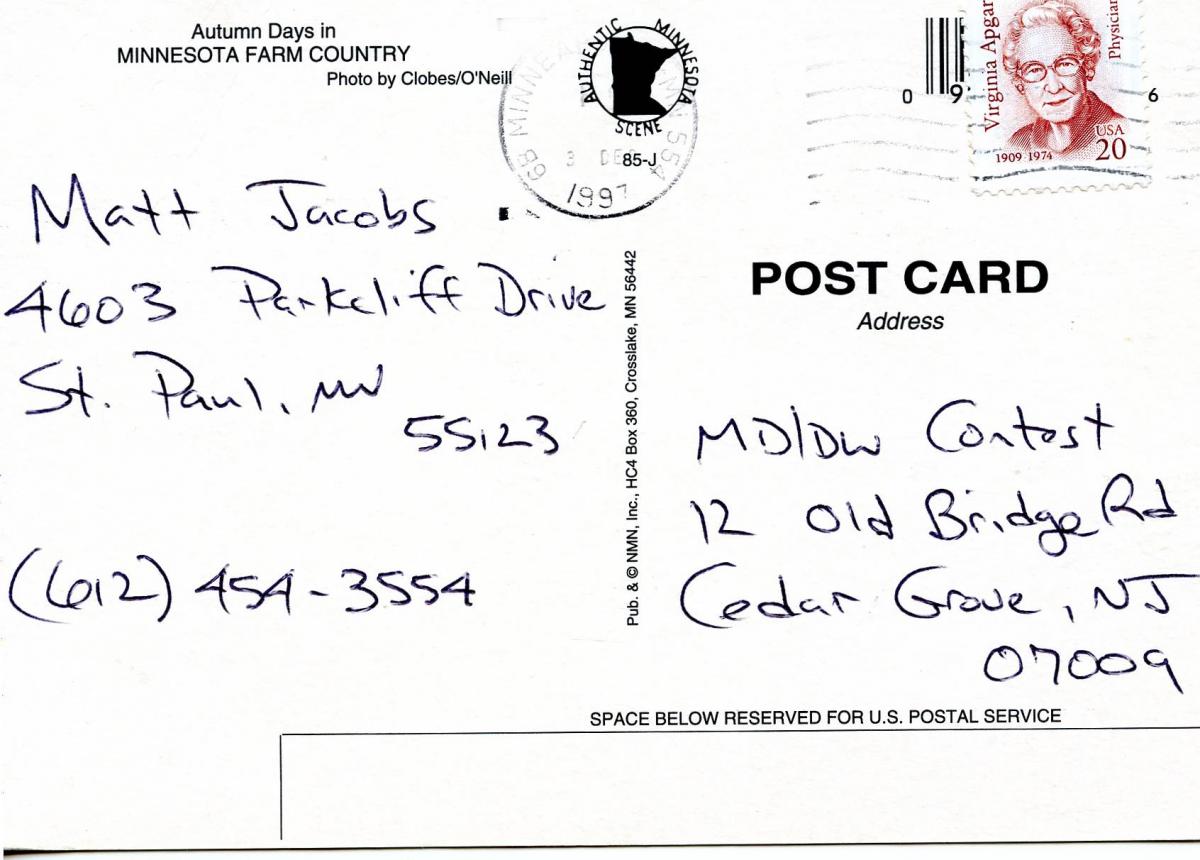 Autumn Days in
MINNESOTA FARM COUNTRY
Photo by Clobes/O'Neill
AUTHENTIC MINNESOTA
SCENE
85-J
MN 554
3 DEC
1997
0 9 6
Virginia Apgar
Physician
1909-1974
USA
20
Matt Jacobs
4603 Parkcliff Drive
St. Paul, MN
55123
(612) 454-3554
Pub. & © NMN, Inc., HC4 Box 360, Crosslake, MN 56442
POST CARD
Address
MD/DW Contest
12 Old Bridge Rd
Cedar Grove, NJ
07009
SPACE BELOW RESERVED FOR U.S. POSTAL SERVICE